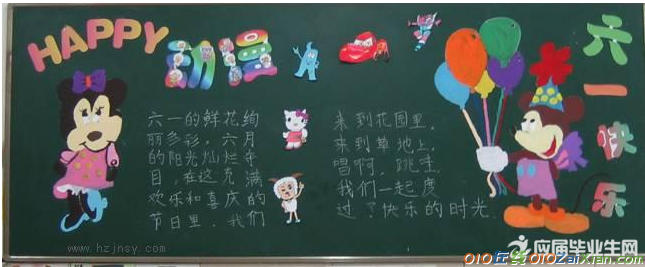 HAPPY
动漫
六一的鲜花绚
丽多彩，六月
的阳光灿烂夺
目，在这充满
欢乐和喜庆的
节日里，我们
来到花园里，
来到草地上，
唱啊，跳哇
我们一起度
过了快乐的时光
六一快乐
www.hzjnsy.com
应届毕业生网
010在线010zaixian.com